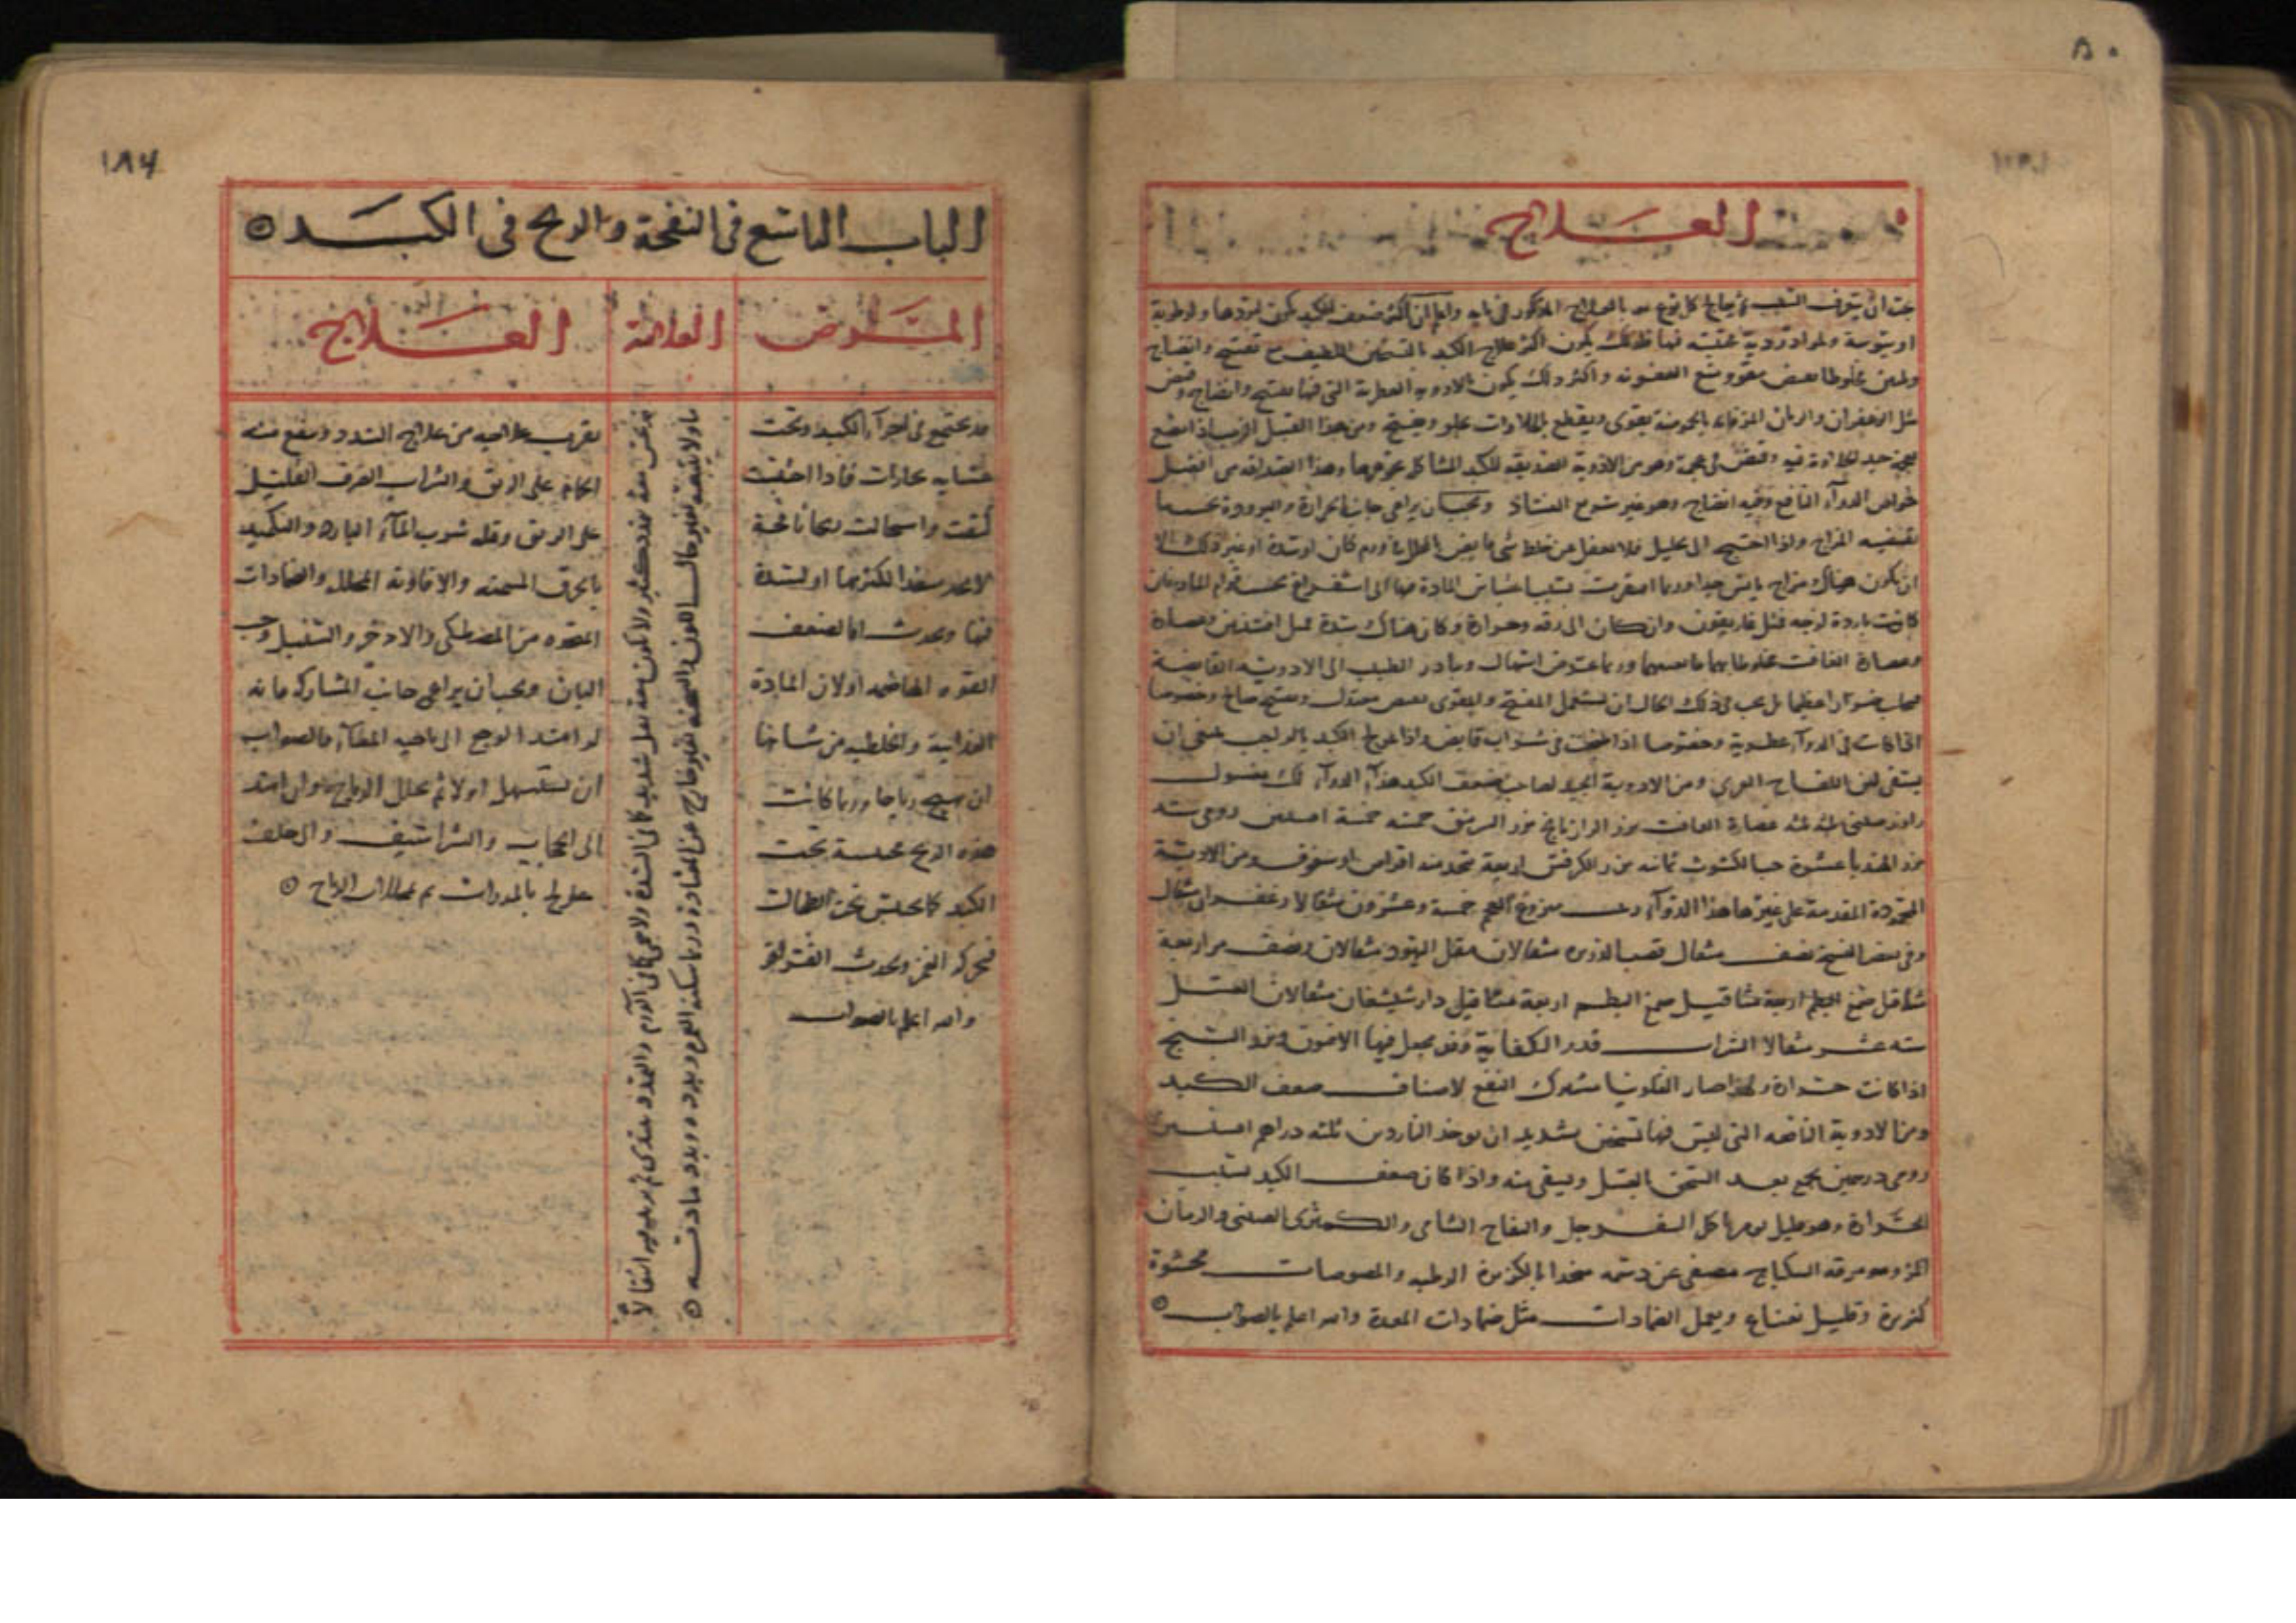 العلاج
يجب ان يتعرف السبب ثم يعالج كل نوع منه بالعلاج المذكور في بابه واعلم ان اكثر ضعف الكبد يكون لبرودها ولرطوبة
او يبوسة ولمواد ردية محتبسة فيها فلذلك يكون اكثر علاج الكبد بالتسخين اللطيف مع تفتيح وانضاج
وتليين مخلوطا بقبض مقوي ومنع العفونه واكثر ذلك يكون بالادوية العطرية التي فيها تفتيح وانضاج وقبض
مثل الزعفران والرمان المز فانه بالحموضة يقوي ويقطع بالحلاوات يجلو ويفتح ومن هذا القبيل الزبيب اذا مضغ
بعجمه جيد لحلاوة فيه وقبض في عجمه وهو من الادوية الصديقه للكبد المشاكله بجوهرها وهذا الصداقه من افضل
خواص الدوآء النافع وفيه انضاج وهو غير سريع الفساد ويجب ان يراعي جانب الحرارة والبرودة بحسب ما
يقتضيه المزاج واذا احتيج الى تحليل فلا تغفل عن خلط شي قابض بالمحلل كان ورم كان او سدة او غير ذلك الا
ان يكون هناك مزاج يابس جدا وربما افتقرت بسبب احتباس المادة فيها الى استفراغ بحسب قوام المادة فان
كانت باردة لزجه فمثل غاريقون وان كان الى رقه وحرارة وكان هناك سدة فمثل افسنتين وعصارة
وعصارة الغافت مخلوطا بهما ما يعينهما وربما عرض اسهال وبادر الطبيب الى الادويه القابضة
فيجلب ضررا عظيما بل يجب في ذلك الحال ان تستعمل المفتح والمقوي بقبض معتدل وتفتيح صالح وخصوصا
اذا كانت في الدوآء عطرية وخصوصا اذا طبخت في شراب قابض واذا عولج الكبد بالواجب فينبغي ان
يسقى لبن اللقاح العربي ومن الادوية الجيدة لصاحب ضعف الكبد هذا الدوآء لك مغسول
راوند صيني ثلثه ثلثه عصارة الغافت بزر الرازيانج بزر السرمق خمسه خمسة افسنتين رومي سته
بزر الهندبا عشرة حب الكشوث ثمانه بزر الكرفس اربعة يتخذ منه اقراص او سفوف ومن الادوية
المحمودة المقدمة على غيرها هذا الدوآء زبيب منزوع العجم خمسة وعشرون مثقالا زعفران مثقال
وفي بعض النسخ نصف مثقال قصب الذريره مثقالان مقل اليهود مثقالان ونصف مر اربعة
مثاقيل صمغ البطم اربعة مثاقيل دارشيشعان مثقالان العسل
سته عشر مثقالا الشراب قدر الكفاية وقد يجعل فيها الافيون وبزر البنج
اذا كانت حرارة ولهذا صار الفلونيا مشترك النفع لاصناف ضعف الكبد
ومن الادوية النافعه التي ليس فيها تسخين شديد ان يوخذ الناردين ثلثه دراهم افسنتين
رومي درهمين يجمع بعد السحق بالعسل ويسقى منه واذا كان ضعف الكبد بسبب
الحرارة وهو قليل يومر باكل السفرجل والتفاح الشامي والكمثرى الصيني والرمان
المز ومرقه السكباج مصفى عن دسمه متخذا بالكزبرة الرطبه والمصوصات محشوة
كزبرة وقليل نعناع ويعمل الضمادات مثل ضمادات المعدة والله اعلم بالصواب
١٨٤
الباب التاسع في النفخة والريح في الكبد
المرض
العلامة
العلاج
قد يجتمع في اجزآء الكبد وتحت
غشايه بخارات فاذا احتقنت
كثفت واستحالت ريحا نافخة
لا تجد منفذا لكثرتها او لسدة
فيها ويحدث اما لضعف
القوه الهاضمه او لان المادة
الغذائية والخلطيه من شانها
ان تهيج رياحا وربما كانت
هذه الريح محتبسة تحت
الكبد كما تحتبس تحت الطحال
فيحركه الغمز ويحدث القراقر
والله اعلم بالصواب
قد يحس معه بتمدد كثير ولا يكون معه ثقل شديد كما في السدة ولا حمى كما في الورم والتمدد يبتدي ثم يزيد انتقالا
ما ولا يتبعه تغير حال اللون والسحنه تغير خارج عن العادة وربما سكنه الغمز وبدده وبدد مادته
يقرب علاجه من علاج السدد وينفع منه
الحمام على الريق والشراب الصرف القليل
على الريق وقله شرب المآء البارد والتكميد
بالخرق المسخنه والافاويه المحلله والضمادات
المتخذه من المصطكي والاذخر والسنبل وحب
البان ويجب ان يراعي جانب المشاركه فانه
لو امتد الوجع الى ناحيه المعآء فالصواب
ان تستسهل اولا ثم تحلل الرياح وان امتد
الى الحجاب والشراسيف والى خلف
عولج بالمدرات ثم بمحللات الرياح